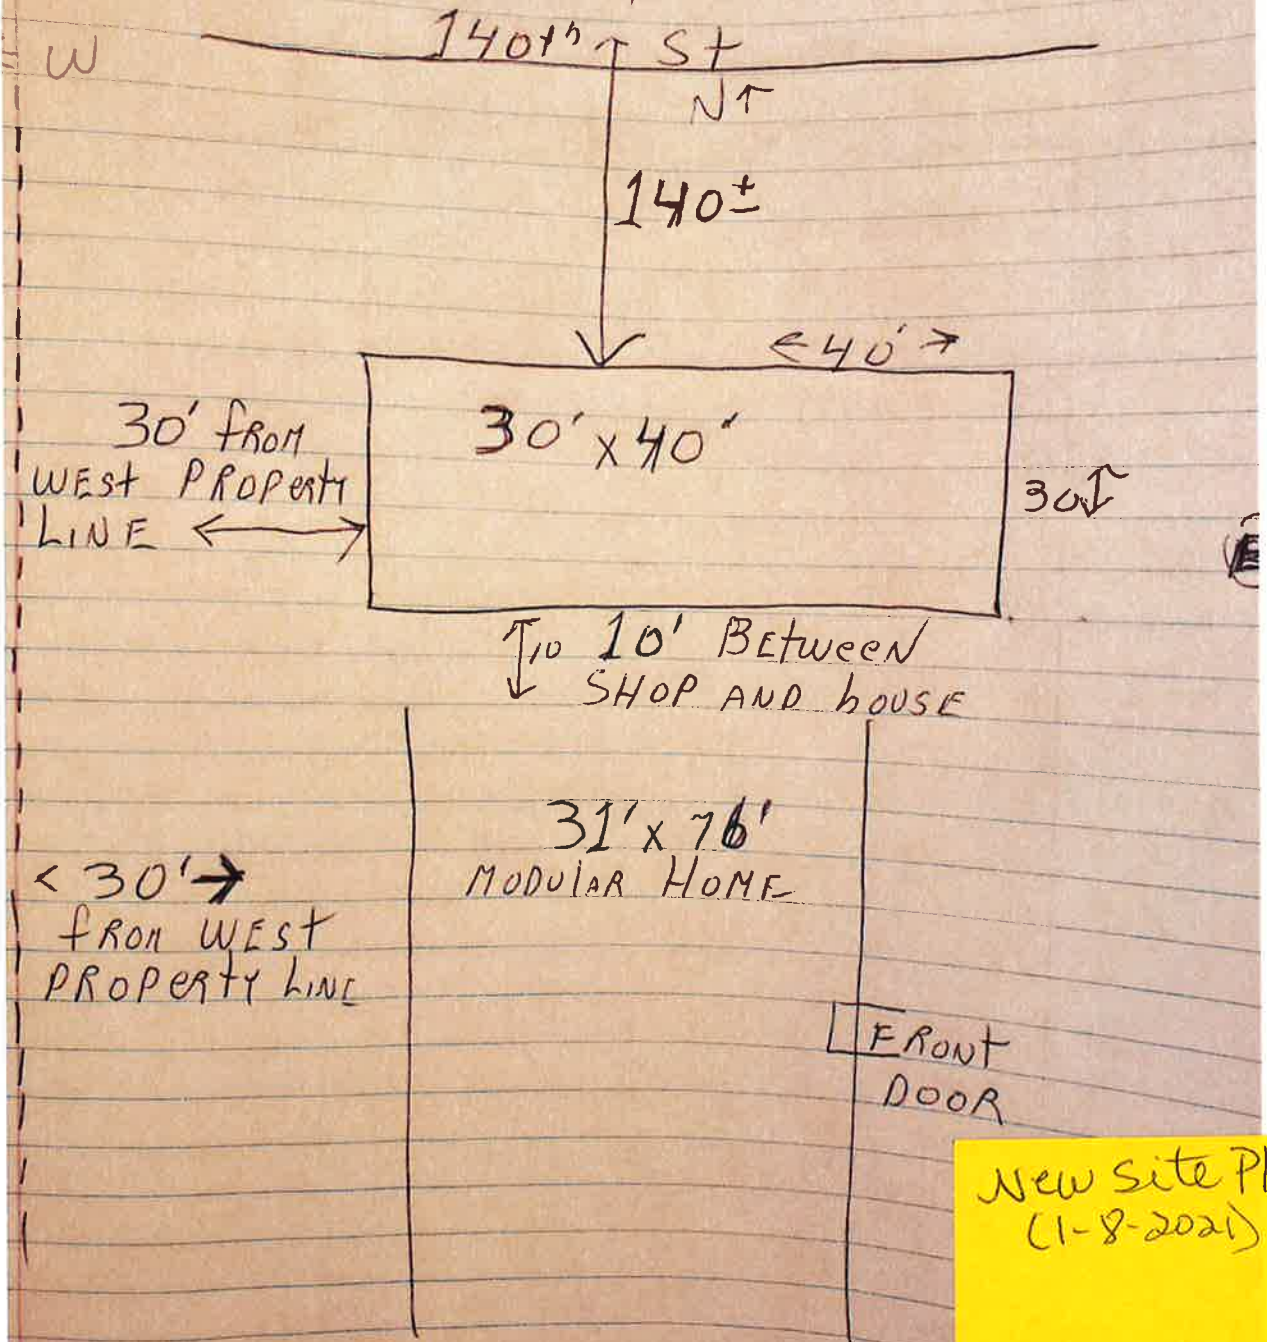 W
140th St
N
140±
←40'→
30' x 40'
30' FROM
WEST PROPERTY
LINE
30
10 10' BETWEEN
SHOP AND HOUSE
31' x 76'
MODULAR HOME
< 30'→
FROM WEST
PROPERTY LINE
FRONT
DOOR
New Site Pl
(1-8-2021)